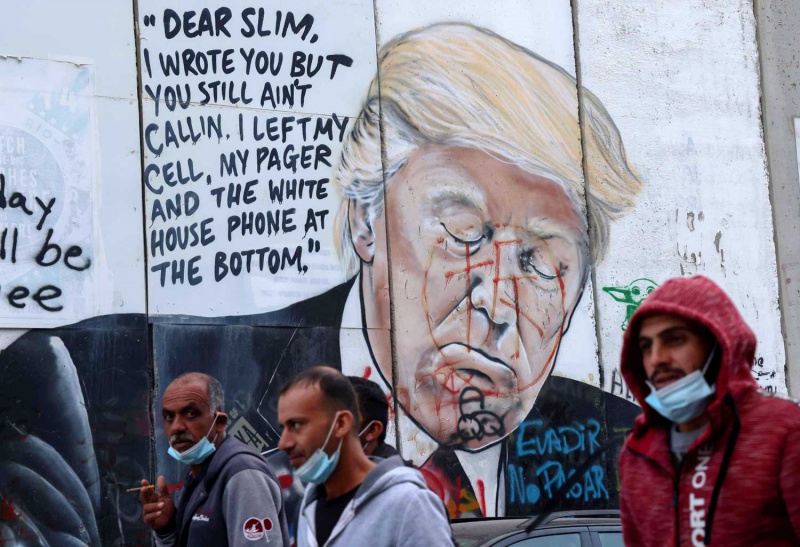 "DEAR SLIM,
I WROTE YOU BUT
YOU STILL AIN'T
CALLIN. I LEFT MY
CELL, MY PAGER
AND THE WHITE
HOUSE PHONE AT
THE BOTTOM,"
ay
ll be
ee
EVADIR
NO
PORT ONE